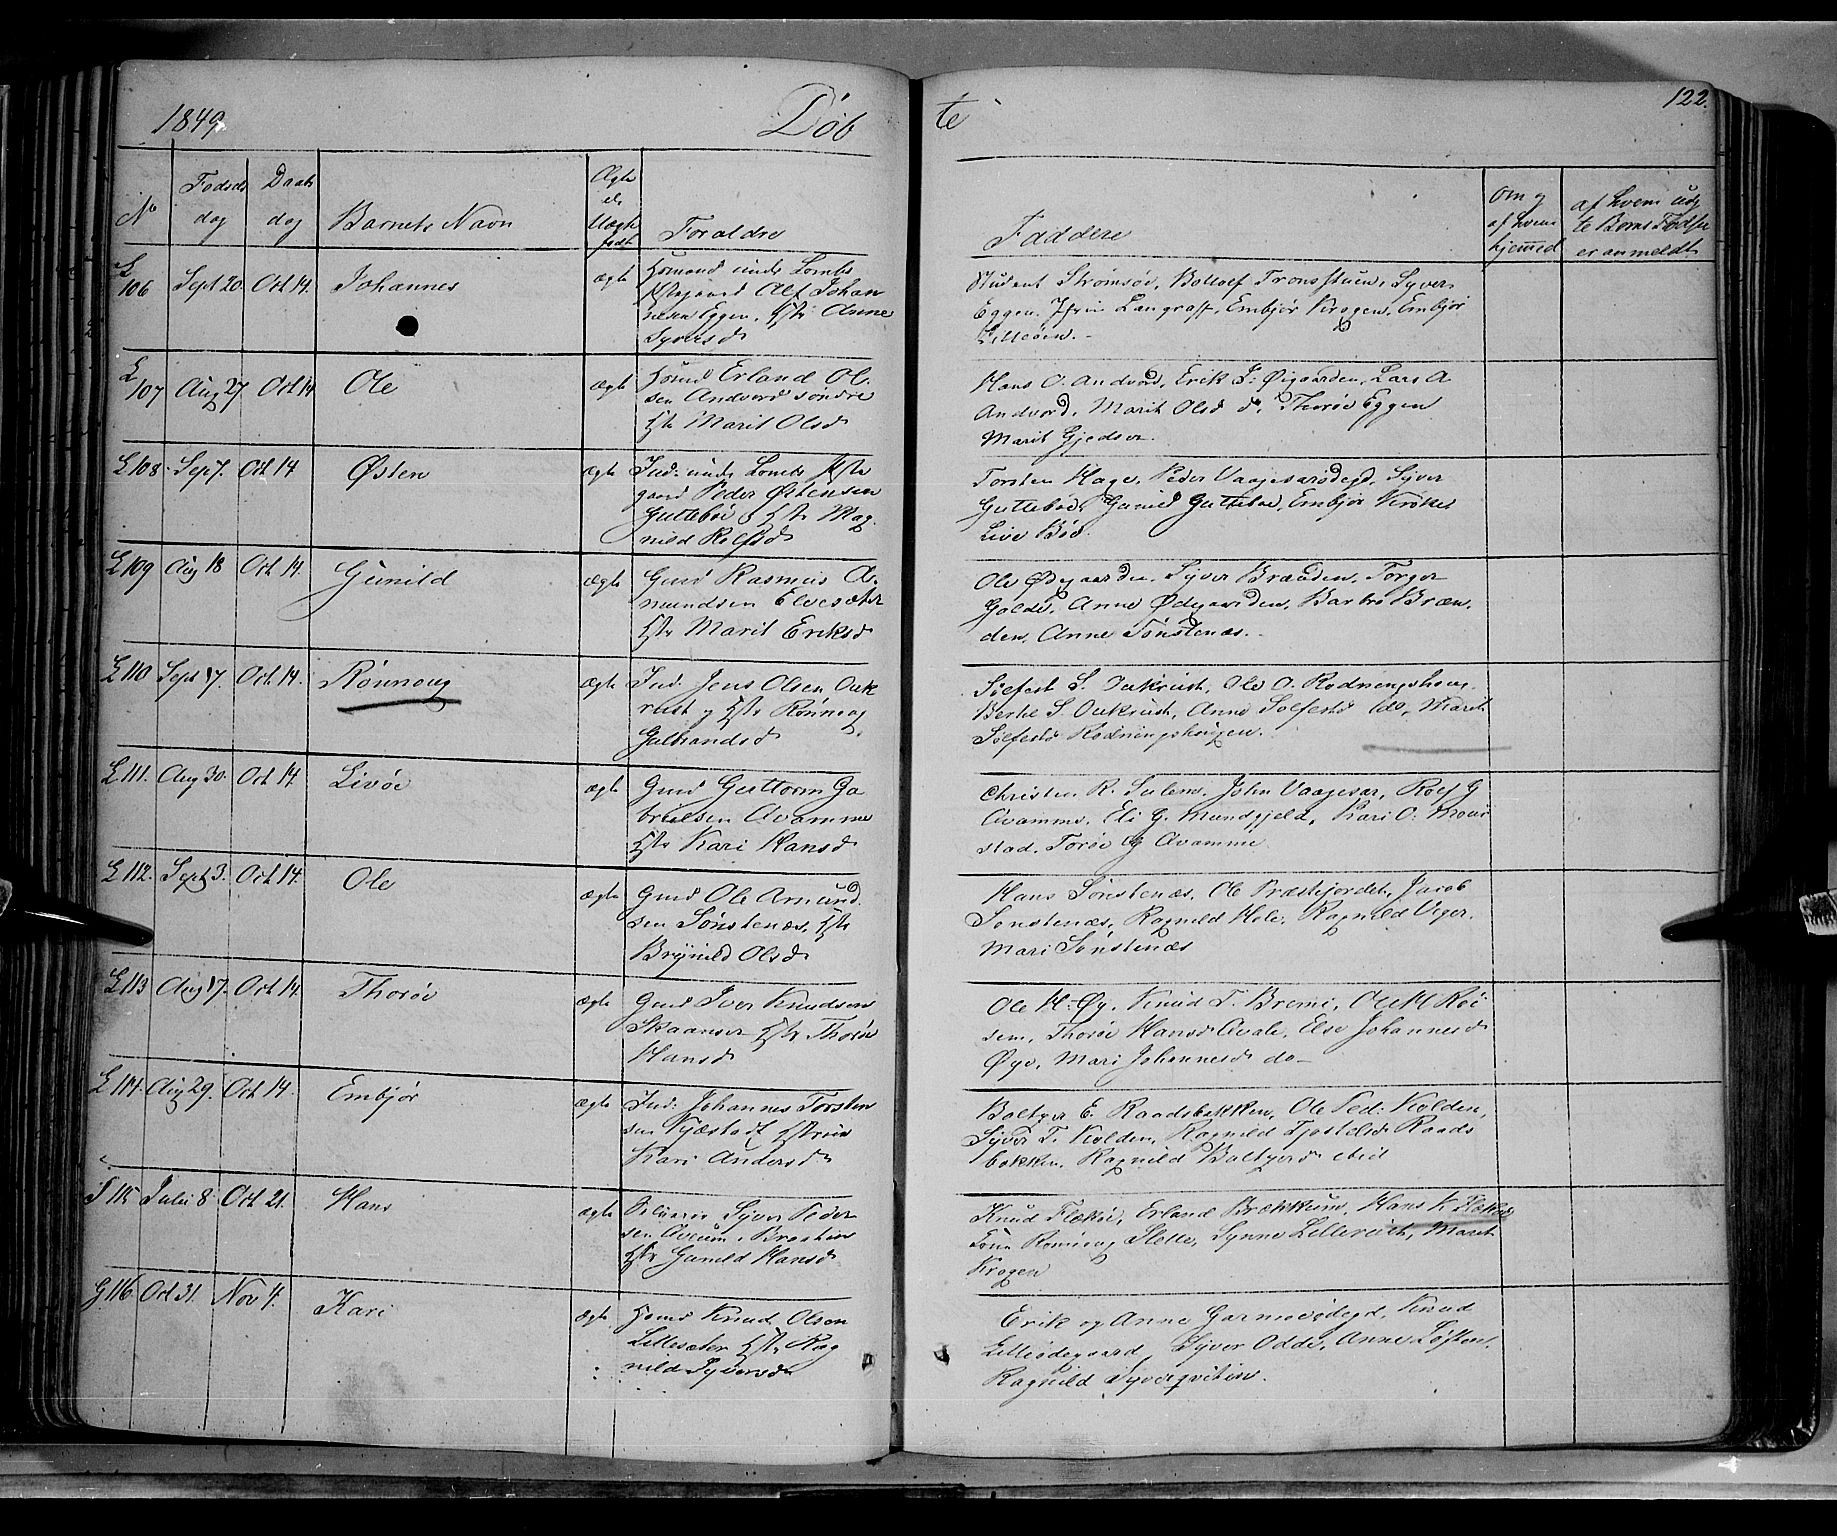 1849 Døb te 122.
No Fødsels dag Daabs dag Barnets Navn Ægte el. Uægte født Foraldre Faddere Om og af hvem hjemmed af hvem
te Børns Fødsel er anmeldt
L 106 Sept 20. Oct 14. Johannes ægte Husmand under Lomb
Alf Johan
nesen Eggen, Hstr Anne
Syversd
Student Strømsøe, Bottolf Tronsstuen, Syver
Eggen, Langraff, Embjør Krogen, Embjør
Lilleøen.
L 107 Aug 27. Oct 14 Ole ægte Husmd Erland Ol-
sen Andvord søndre
Hstr Marit Olsd
Hans O. Andvord, Erik J. Øigaarden, Lars A
Andvord, Marit Olsd d., Thorøe Eggen
Marit Gjedsar.
L 108. Sep 7. Oct 14 Østen ægte Ind. under Lomb
gaard Peder Østensen
Guttebøe, Hstr Mag-
nild Rolfsd
Torsten Hage, Peder Vaagesarødegd, Syver
Guttebøe, Gunild Guttebøe, Embjør
Live Bøe.
L 109 Aug 18 Oct 14. Gunild ægte Gmd Rasmus A-
mundsen Elvesæter
Hstr Marit Eriksd
Ole Ødegaarden, Syver Brænden, Torger
Galde, Anne Ødegaarden, Barbro Bræn-
den, Anne Sønstenæs.
L 110 Sept 17. Oct. 14. Rønnoug ægte Ind. Jens Olsen Ouk
rust og Hstr Rønnoug
Gulbrandsd
Solfest S. Oukrust, Ole O. Rodningshoug
Berthe S. Oukrust, Anne Solfestd do, Marit
Solfestd Rodningshougen.
L 111. Aug 30. Oct 14. Livøe ægte Gmd Guttorm Ga
brielsen Qvamme
Hstr Kari Hansd
Christen R. Sulem, John Vaagesar, Rolf G
Qvamme, Eli G. Mundgjeld, Kari O. Mour
stad, Torøe G Qvamme
L 112. Sept 3. Oct 14. Ole ægte Gmd Ole Amund
sen Sønstenæs, Hstr
Brynild Olsd
Hans Sønstenæs, Ole Præstejordet, Jacob
Sønstenæs, Ragnild Hole, Ragnild Veger.
Mari Sønstenæs
L 113 Aug 17. Oct 14. Thorøe ægte Gmd Iver Knudsen
Skaanser Hstr Thorøe
Hansd
Ole H. Øy, Knud T. Bremi,
sem, Thorøe Hansd Qvale, Else Johannesd
Øye, Mari Johannesd do
L 114. Aug 29. Oct 14. Embjør ægte Ind. Johannes Torsten
sen Kjæstad Hstrue
Kari Andersd
Baltzer E. Raadsbakken, Ole Ped: Kolden,
Syver T. Kolden, Ragnild Raads
bakken, Ragnild Baltzersd ibid
S 115 Julii 8. Oct 21. Hans ægte Syver Peder
sen
Hstr Gunild Hansd
Knud Flækøi, Erland Brækkum, Hans K Flækøi
Rønnoug Slette, Synne Lillerust, Marit
Krogen
G 116 Oct 31. Nov 4. Kari ægte Husmd Knud Olsen
Lillesæter Hstr Rag
nild Syversd
Erik og Anne Garmosødegd, Knud
Lilleødegaard, Syver Odde, Anne Løften,
Ragnild